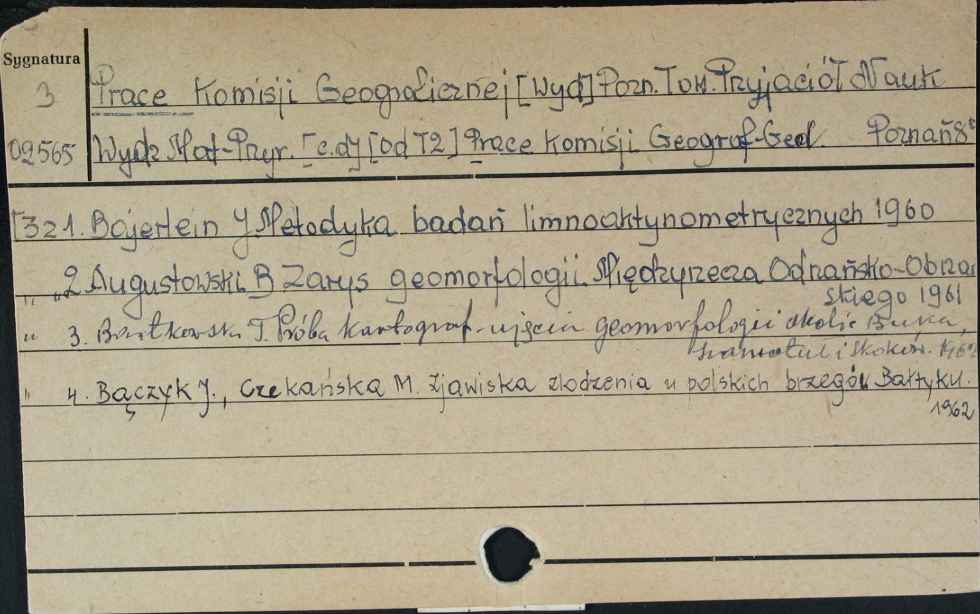 Sygnatura
3
Prace Komisji Geograficznej [Wyd] Pozn. Tow. Przyjaciół Nauk
02565 Wydz Mat-Przyr. [c.d] [od T2] Prace Komisji Geograf-Geol Poznań 8°
[3z 1. Bajerlein J Metodyka badań limnoaktynometrycznych 1960
" " 2 Augustowski B Zarys geomorfologii Międzyrzecza Odrzańsko-Obrzań
skiego 1961
" 3. Bartkowska T. Próba kartograf-ujęcia geomorfologii okolic Buka,
Szamotuł i Skoków. 1962
" 4. Bączyk J., Czekańska M. Zjawiska zlodzenia u polskich brzegów Bałtyku.
1962